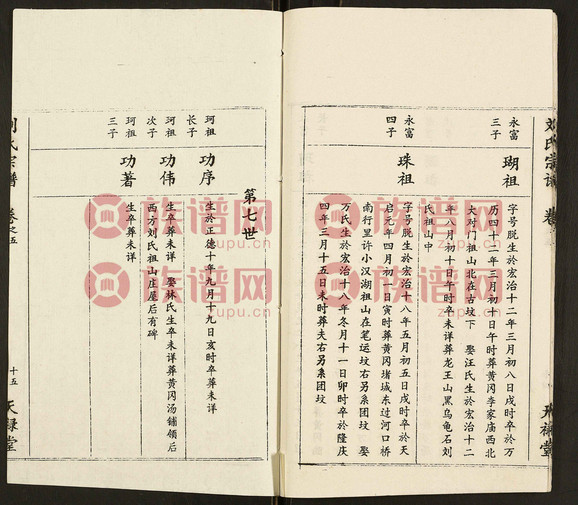 刘氏宗谱
卷
永富
三子
瑚祖
字号脱生於宏治十二年三月初八日戌时卒於万
历四十二年三月初十日午时葬黄冈李家庙西北
大对门祖山北在古坟下 娶汪氏生於宏治十二
年八月初十日午时卒未详葬龙王山黑乌龟石刘
氏祖山中
永富
四子
珠祖
字号脱生於宏治十八年五月初五日戌时卒於天
启元年四月初一日寅时葬黄冈堵城东过河口桥
南行里许小汉湖祖山在笔运坟右另系团坟 娶
万氏生於宏治十八年冬月十一日卯时卒於隆庆
四年三月十五日未时葬夫右另系团坟
第七世
珂祖
长子
功序
生於正德十年九月十九日亥时卒葬未详
珂祖
次子
功伟
生卒葬未详 娶林氏生卒未详葬黄冈汤铺领后
西方刘氏祖山庄屋后有碑
珂祖
三子
功著
生卒葬未详
刘氏宗谱
卷之五
十五
天禄堂
族谱网
zupu.cn